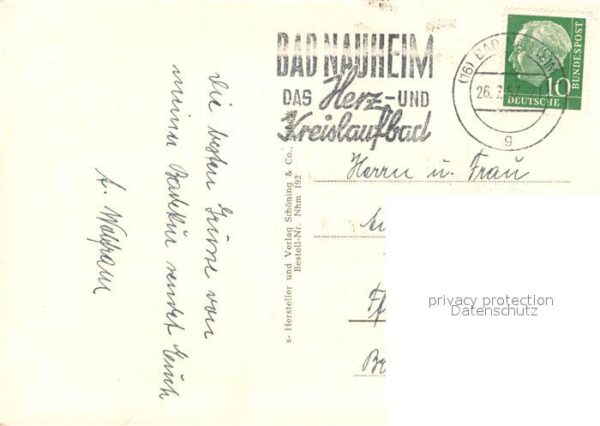 BAD NAUHEIM
DAS Herz-UND
Kreislaufbad
(16) BAD NAUHEIM
26. 7. 57
g
DEUTSCHE
BUNDESPOST
10
Die besten Grüsse von
meiner Badekur sendet Euch
A. Wolfram
s- Hersteller und Verlag Schöning & Co.,
Bestell-Nr. Nhm 192
Herrn u. Frau
privacy protection
Datenschutz